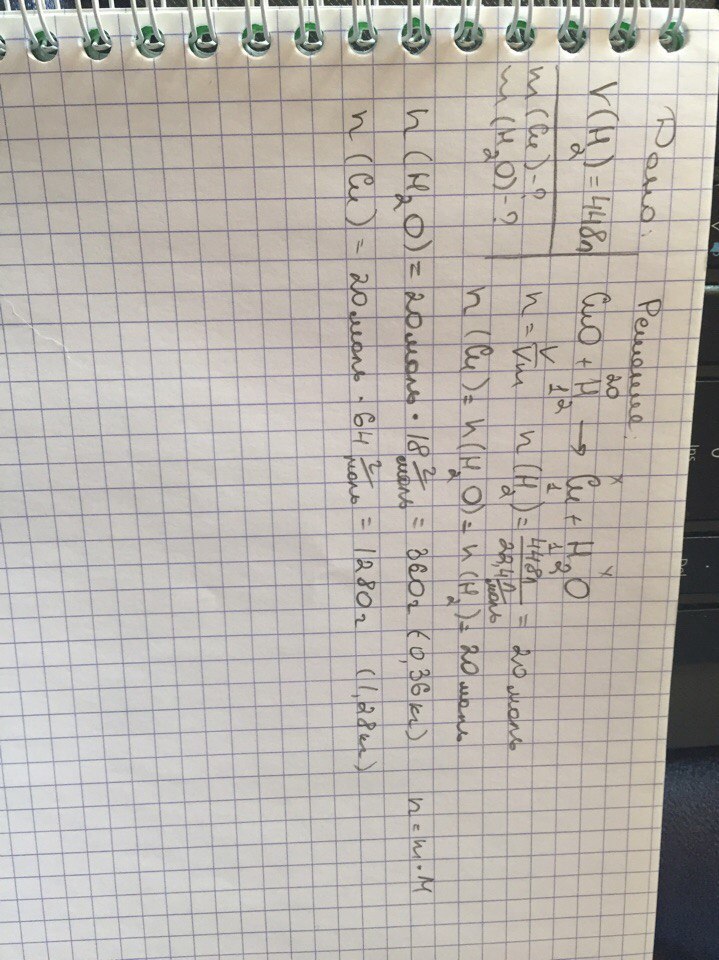 Дано:
V(H2) = 448л
m(Cu) - ?
m(H2O) - ?
Решение:
20 x x
CuO + H2 → Cu + H2O
1 1 1
n = V/Vm n(H2) = 448л / 22,4 л/моль = 20 моль
n(Cu) = n(H2O) = n(H2) = 20 моль
n(H2O) = 20моль · 18 г/моль = 360г (0,36кг) n = m · M
n(Cu) = 20моль · 64 г/моль = 1280г (1,28кг)